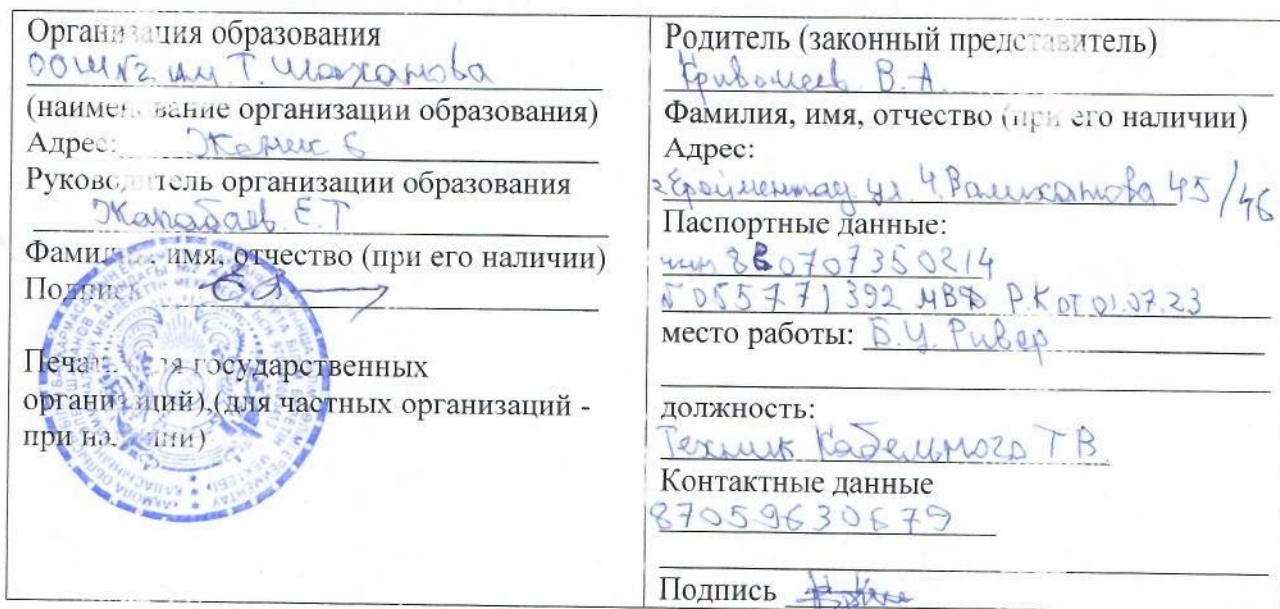 Организация образования
ООШ №2 им. Т. Шаханова
(наименование организации образования)
Адрес:
Руководитель организации образования
Жапабаев Е.Т
Фамилия, имя, отчество (при его наличии)
Подпись
Печать (для государственных
организаций),(для частных организаций -
при наличии)
Родитель (законный представитель)
В. А.
Фамилия, имя, отчество (при его наличии)
Адрес:
г Ерейментау ул. Ч. Валиханова 45/46
Паспортные данные:
иин 880707350214
055771392 МВД Р.К от 01.07.23
место работы: Б.Ц. Ривер
должность:
Техник Кабельного ТВ.
Контактные данные
87059630679
Подпись